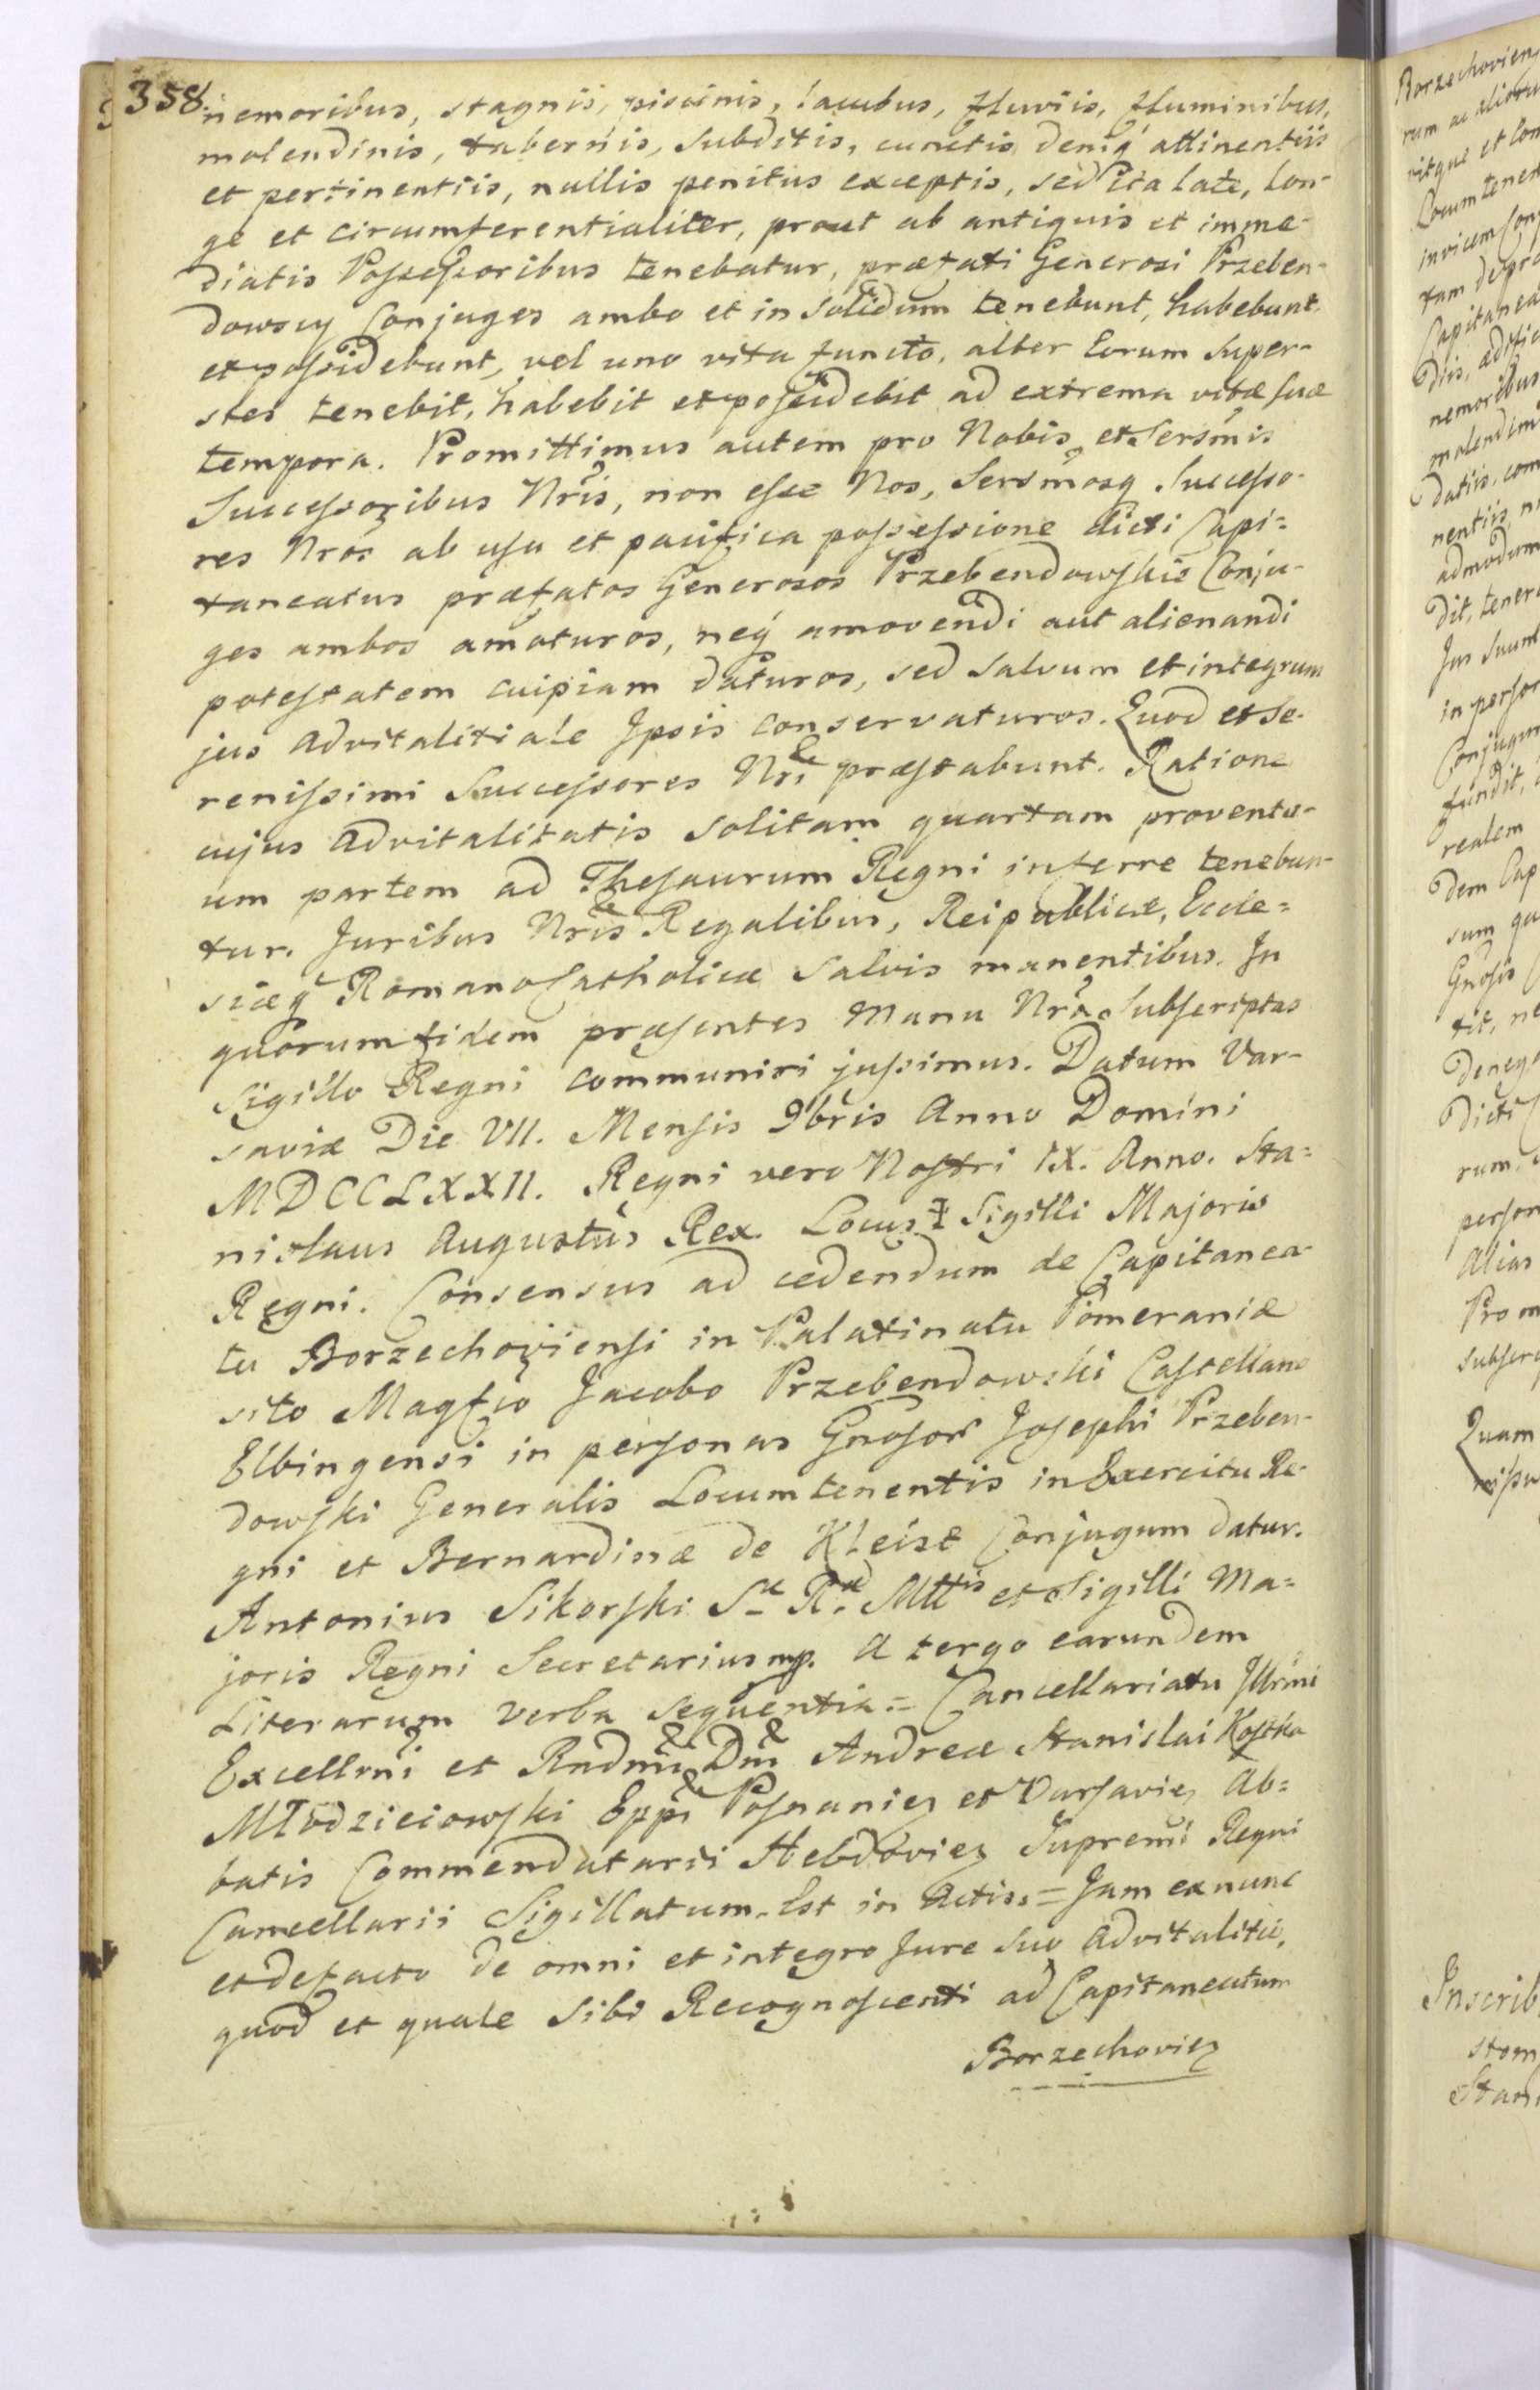 358.
nemoribus, stagnis, piscinis, lacubus, fluviis, fluminibus,
molendinis, tabernis, subditis, cunctis deniq́ attinentiis
et pertinentiis, nullis penitus exceptis, sed ita late, lon-
ge et circumferentialiter, prout ab antiquis et imme-
diatis Possessoribus tenebatur, præfati Generosi Przeben-
dowscy Conjuges ambo et in solidum tenebunt, habebunt
et possidebunt, vel uno vita functo, alter Eorum super-
stes tenebit, habebit et possidebit ad extrema vitæ suæ
tempora. Promittimus autem pro Nobis et Sersmis
Successoribus Nris, non esse Nos, Sersmosq Successo-
res Nros ab usu et pacifica possessione dicti Capi=
taneatus præfatos Generosos Przebendowskie Conju-
ges ambos amoturos, neq́ amovendi aut alienandi
potestatem cuipiam daturos, sed salvum et integrum
jus advitalitiale Ipsis conservaturos. Quod et Se-
renissimi Successores Nri præstabunt. Ratione
cujus advitalitatis solitam quartam proventu-
um partem ad Thesaurum Regni inferre tenebun-
tur. Juribus Nris Regalibus, Reipublicæ, Eccle=
siæq́ Romano Catholicæ salvis manentibus. In
quorum fidem præsentes Manu Nra subscriptas
Sigillo Regni communiri jussimus. Datum Var-
saviæ Die VII. Mensis 9bris Anno Domini
MDCCLXXII. Regni vero Nostri IX. Anno. Sta=
nislaus Augustus Rex. Locus ‡ Sigilli Majoris
Regni. Consensus ad cedendum de Capitanea-
tu Borzechoviensi in Palatinatu Pomeraniæ
sito Magfco Jacobo Przebendowski Castellano
Elbingensi in personas Gnosor Josephi Przeben-
dowski Generalis Locumtenentis in Exercitu Re-
gni et Bernardinæ de Kleist Conjugum datur.
Antonius Sikorski Sæ Ræ Mttis et Sigilli Ma=
joris Regni Secretarius mp. A tergo earundem
Literarum verba sequentia = Cancellariatu Illrmi
Excellmi et Rndmi Dni Andreæ Stanislai Kostka
Młodzieiowski Eppi Posnanien et Varsavien Ab=
batis Commendatarii Hebdovien Supremi Regni
Cancellarii Sigillatum. Est in Actis = Jam ex nunc
et de facto de omni et integro Jure suo advitalitio,
quod et quale sibi Recognoscenti ad Capitaneatum
Borzechovien
Borzechovien
rum ac aliorum
vitque et
Locumtenen
invicem
tam de
Capitanea
diis, ædific
nemoribus
molendini
datiis, com
nentiis
admodum
dit, tener
Jus suum
in person
Conjugum
fundit,
realem
dem Cap
sum qu
Gnosis
tit, ne
deneg
dicti
rum
person
Alias
Prom
subscr
Quam
Inscrib
stom
Stan